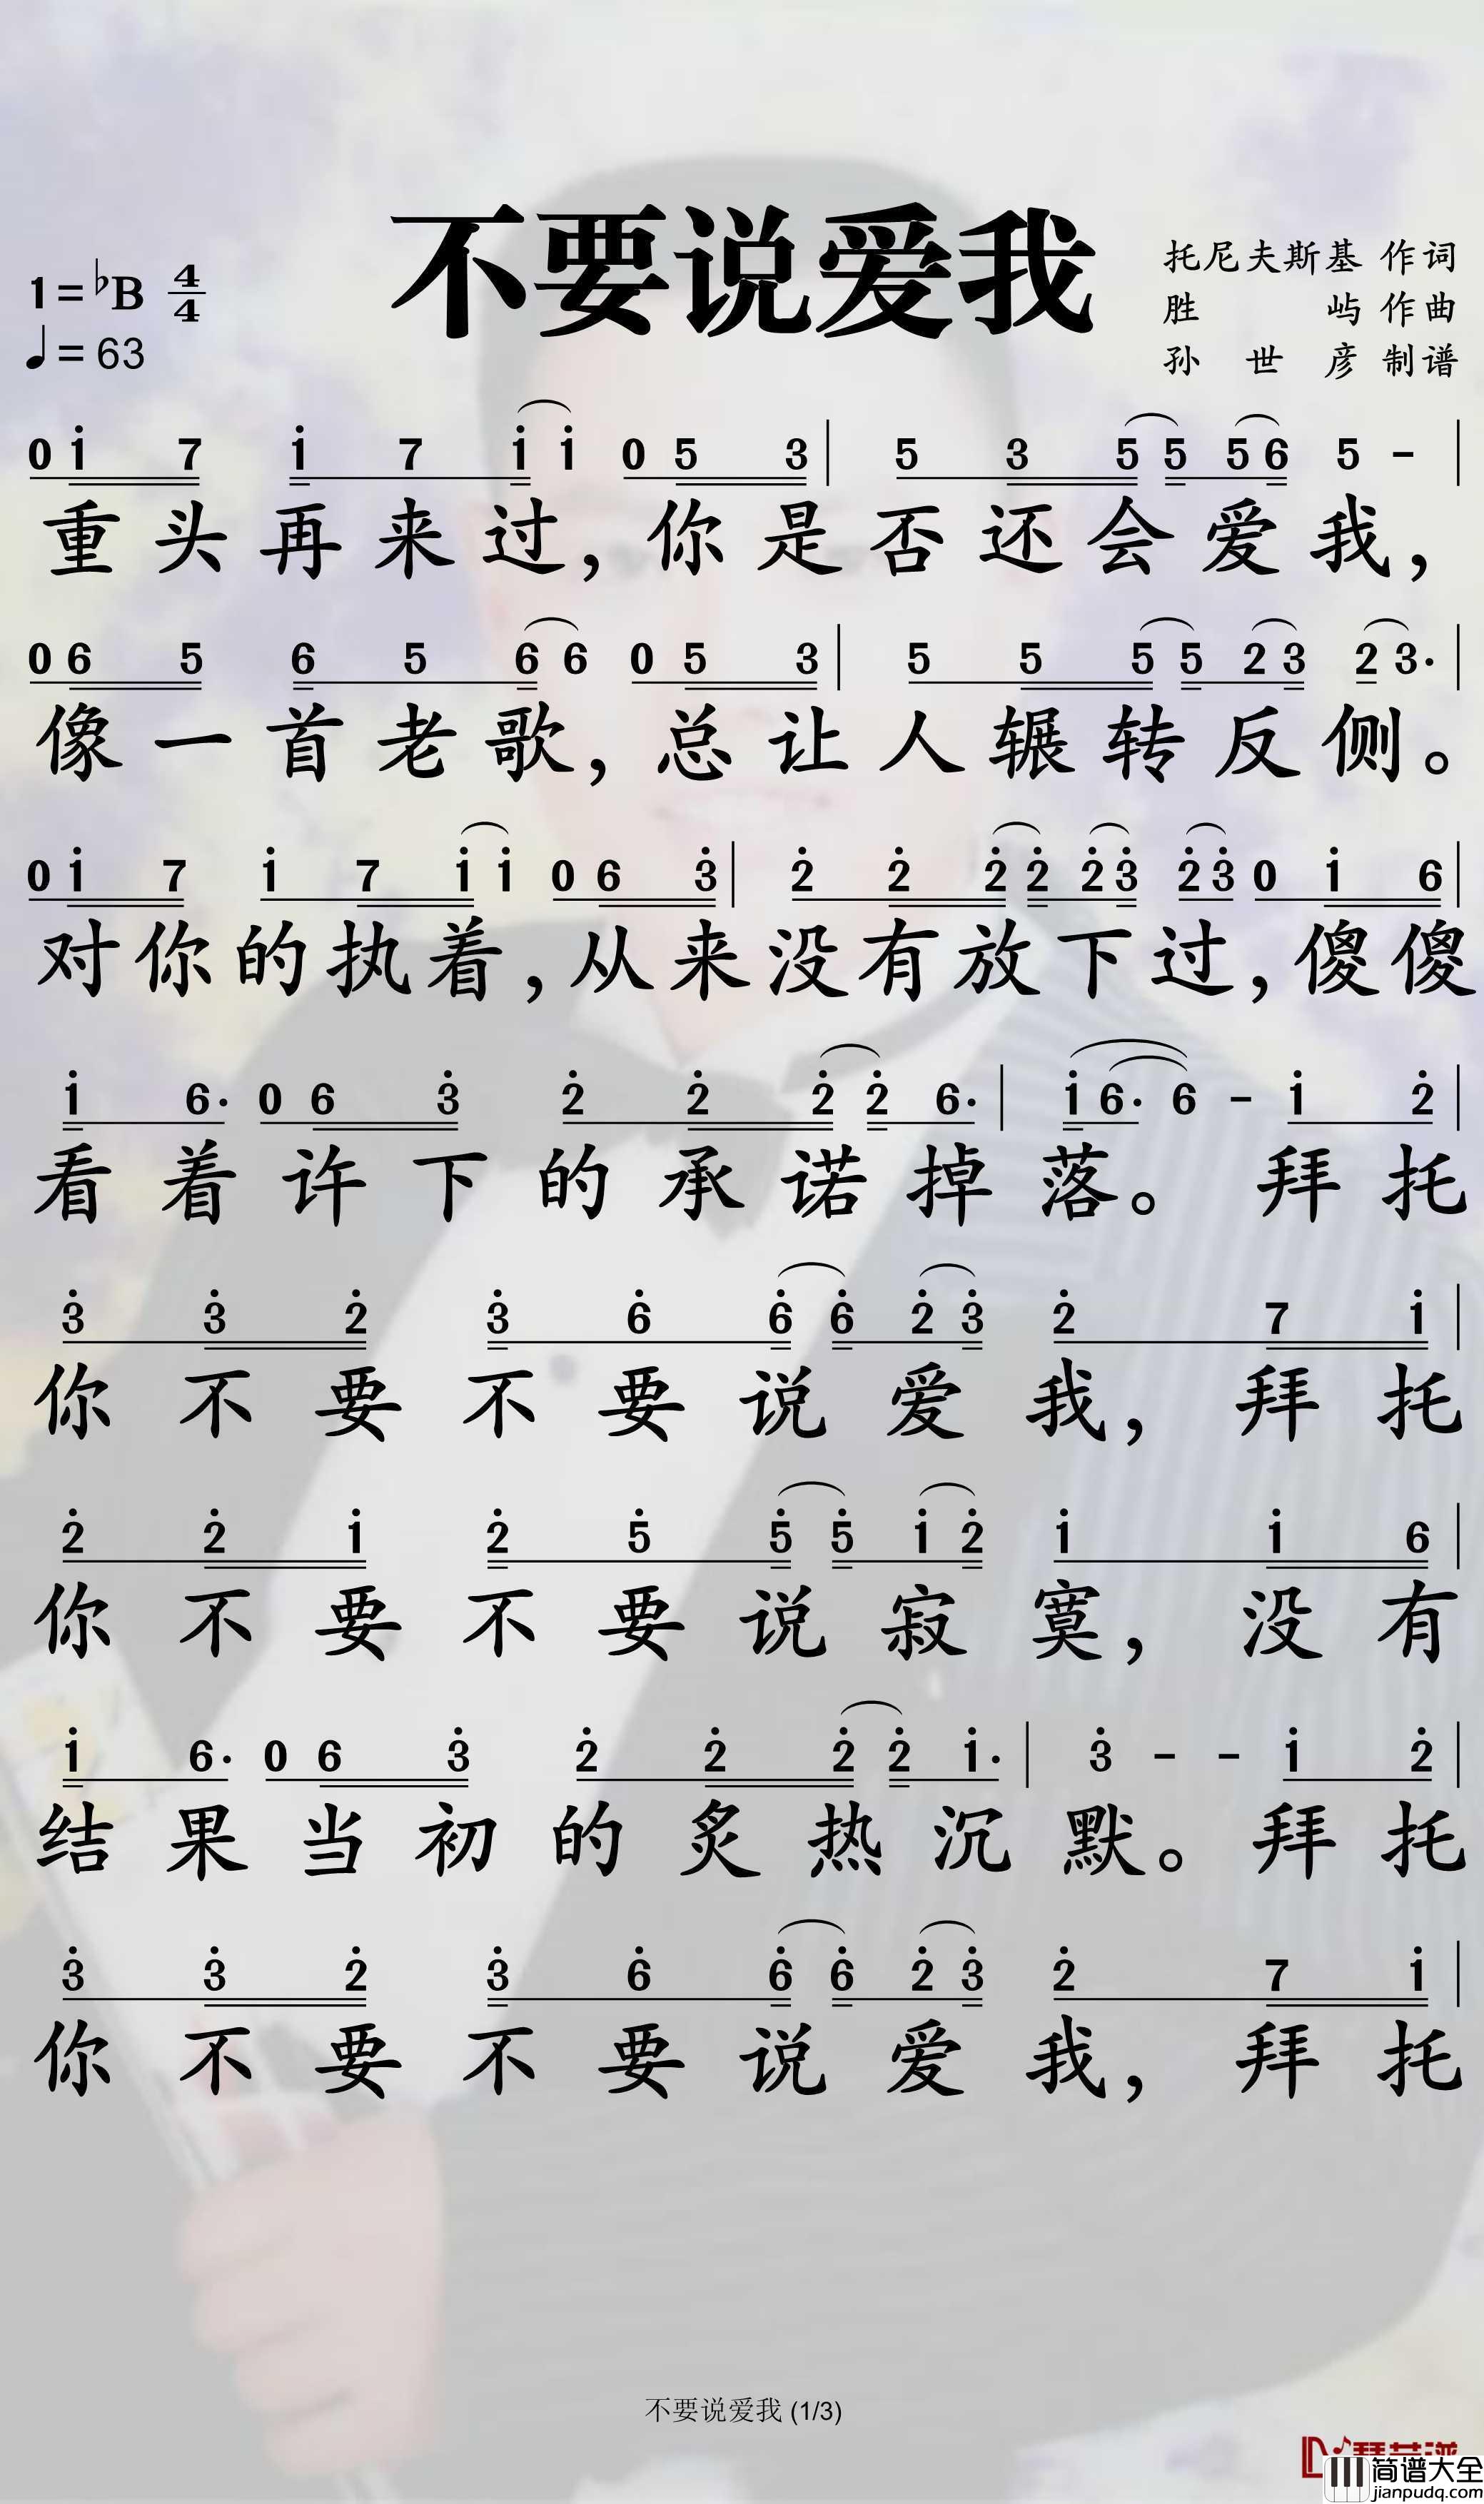 不要说爱我
1=♭B 4/4
♩=63
托尼夫斯基 作词
胜 屿 作曲
孙 世 彦 制谱
0 i 7 i 7 i i 0 5 3 | 5 3 5 5 5 6 5 - |
重头再来过，你是否还会爱我，
0 6 5 6 5 6 6 0 5 3 | 5 5 5 5 2 3 2 3· |
像一首老歌，总让人辗转反侧。
0 i 7 i 7 i i 0 6 3̇ | 2̇ 2̇ 2̇ 2̇ 2̇ 3̇ 2̇ 3̇ 0 i 6 |
对你的执着，从来没有放下过，傻傻
i 6· 0 6 3̇ 2̇ 2̇ 2̇ 2̇ 6· | i 6· 6 - i 2̇ |
看着许下的承诺掉落。拜托
3̇ 3̇ 2̇ 3̇ 6̇ 6̇ 6̇ 2̇ 3̇ 2̇ 7 i |
你不要不要说爱我，拜托
2̇ 2̇ i 2̇ 5̇ 5̇ 5̇ i 2̇ i i 6 |
你不要不要说寂寞，没有
i 6· 0 6 3̇ 2̇ 2̇ 2̇ 2̇ i· | 3̇ - - i 2̇ |
结果当初的炙热沉默。拜托
3̇ 3̇ 2̇ 3̇ 6̇ 6̇ 6̇ 2̇ 3̇ 2̇ 7 i |
你不要不要说爱我，拜托
不要说爱我 (1/3)
简谱大全
jianpudq.com